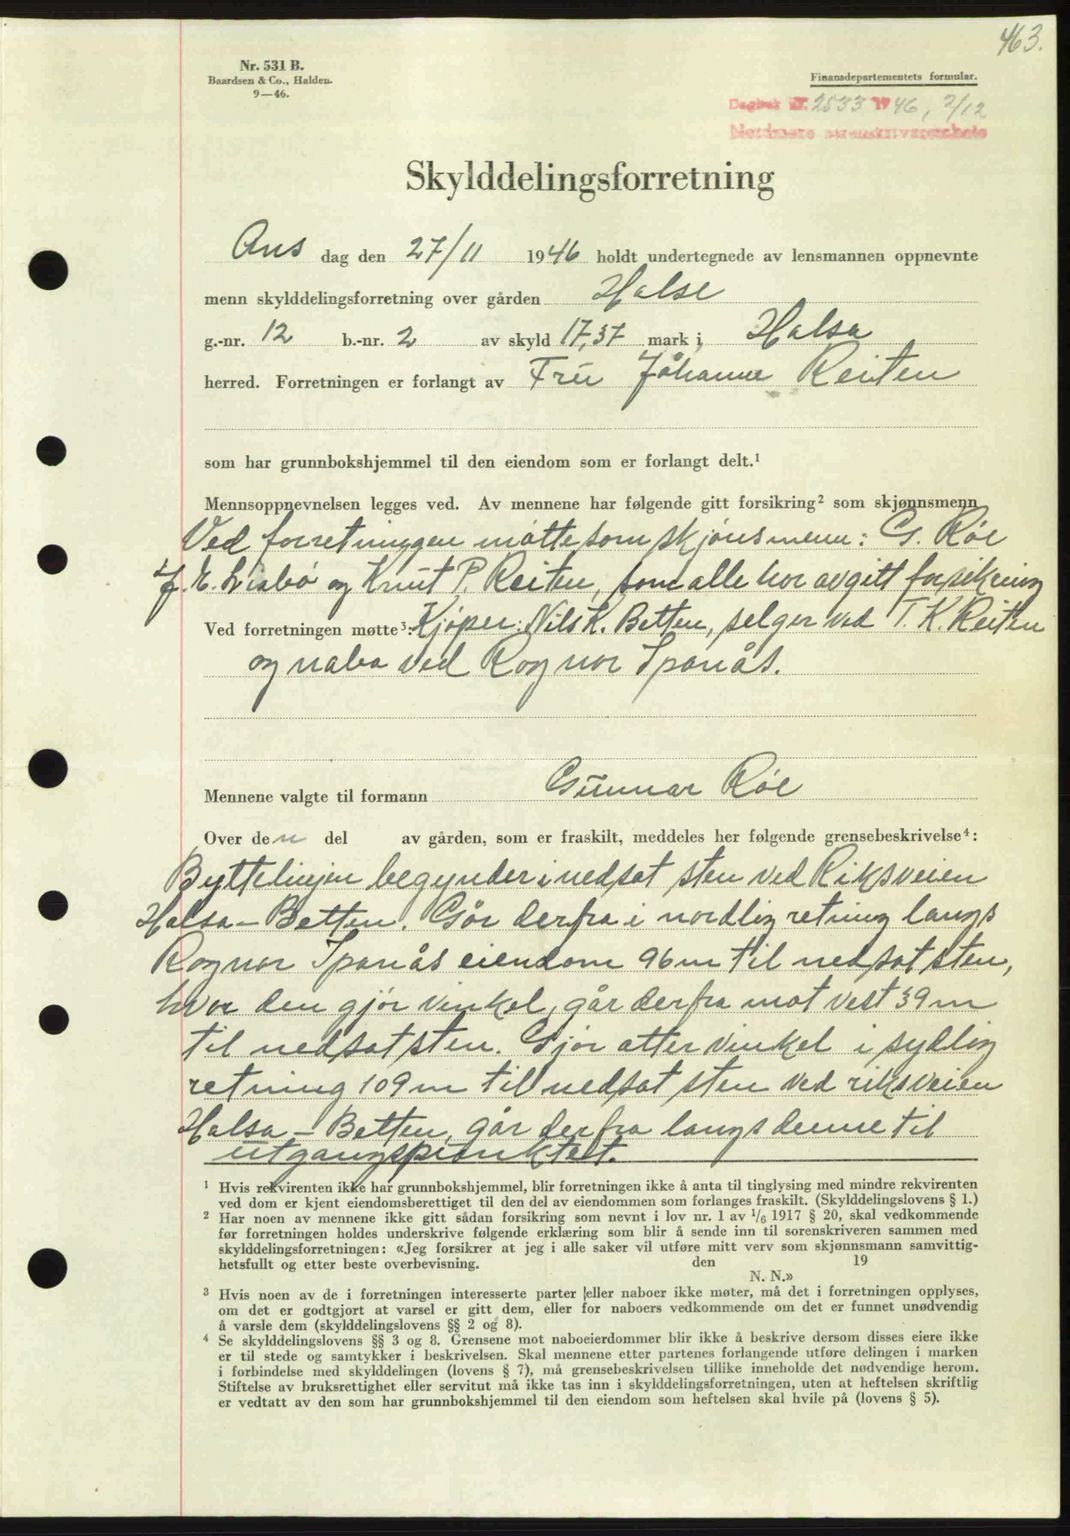 463.
Nr. 531 B.
Baardsen & Co., Halden.
9—46.
Finansdepartementets formular.
Dagbok nr. 2533 1946, 2/12
Nordmøre sorenskriverembete
Skylddelingsforretning
Ons dag den 27/11 1946 holdt undertegnede av lensmannen oppnevnte
menn skylddelingsforretning over gården Halse
g.-nr. 12 b.-nr. 2 av skyld 17,37 mark i Halsa
herred. Forretningen er forlangt av Fru Johanne Reiten
som har grunnbokshjemmel til den eiendom som er forlangt delt.¹
Mennsoppnevnelsen legges ved. Av mennene har følgende gitt forsikring² som skjønnsmenn
Ved forretninggen møtte som skjønsmenn: G. Røe
J. E. Lisbø og Knut P. Reiten, som alle har avgitt forsikring
Ved forretningen møtte³: Kjøper: Nils K. Betten, selger ved T. K. Reiten
og nabo ved Ragnar Spanås.
Mennene valgte til formann Gunnar Røe
Over den del av gården, som er fraskilt, meddeles her følgende grensebeskrivelse⁴:
Byttelinjen begynder i nedsat sten ved Riksveien
Halsa - Betten. Går derfra i nordlig retning langs
Ragnar Spanås eiendom 96 m til nedsat sten,
hvor den gjør vinkel, går derfra mot vest 39 m
til nedsat sten. Gjør atter vinkel i sydlig
retning 109 m til nedsat sten ved riksveien
Halsa - Betten, går derfra langs denne til
utgangspunktet.
¹ Hvis rekvirenten ikke har grunnbokshjemmel, blir forretningen ikke å anta til tinglysing med mindre rekvirenten
ved dom er kjent eiendomsberettiget til den del av eiendommen som forlanges fraskilt. (Skylddelingslovens § 1.)
² Har noen av mennene ikke gitt sådan forsikring som nevnt i lov nr. 1 av 1/6 1917 § 20, skal vedkommende
før forretningen holdes underskrive følgende erklæring som blir å sende inn til sorenskriveren sammen med
skylddelingsforretningen: «Jeg forsikrer at jeg i alle saker vil utføre mitt verv som skjønnsmann samvittig-
hetsfullt og etter beste overbevisning. den 19
N. N.»
³ Hvis noen av de i forretningen interesserte parter eller naboer ikke møter, må det i forretningen opplyses,
om det er godtgjort at varsel er gitt dem, eller for naboers vedkommende om det er funnet unødvendig
å varsle dem (skylddelingslovens §§ 2 og 8).
⁴ Se skylddelingslovens §§ 3 og 8. Grensene mot naboeierdommer blir ikke å beskrive dersom disses eiere ikke
er til stede og samtykker i beskrivelsen. Skal mennene etter partenes forlangende utføre delingen i marken
i forbindelse med skylddelingen (lovens § 7), må grensebeskrivelsen tillike inneholde det nødvendige herom.
Stiftelse av bruksrettighet eller servitut må ikke tas inn i skylddelingsforretningen, uten at heftelsen skriftlig
er vedtatt av den som har grunnbokshjemmel til den eiendom som heftelsen skal hvile på (lovens § 5).